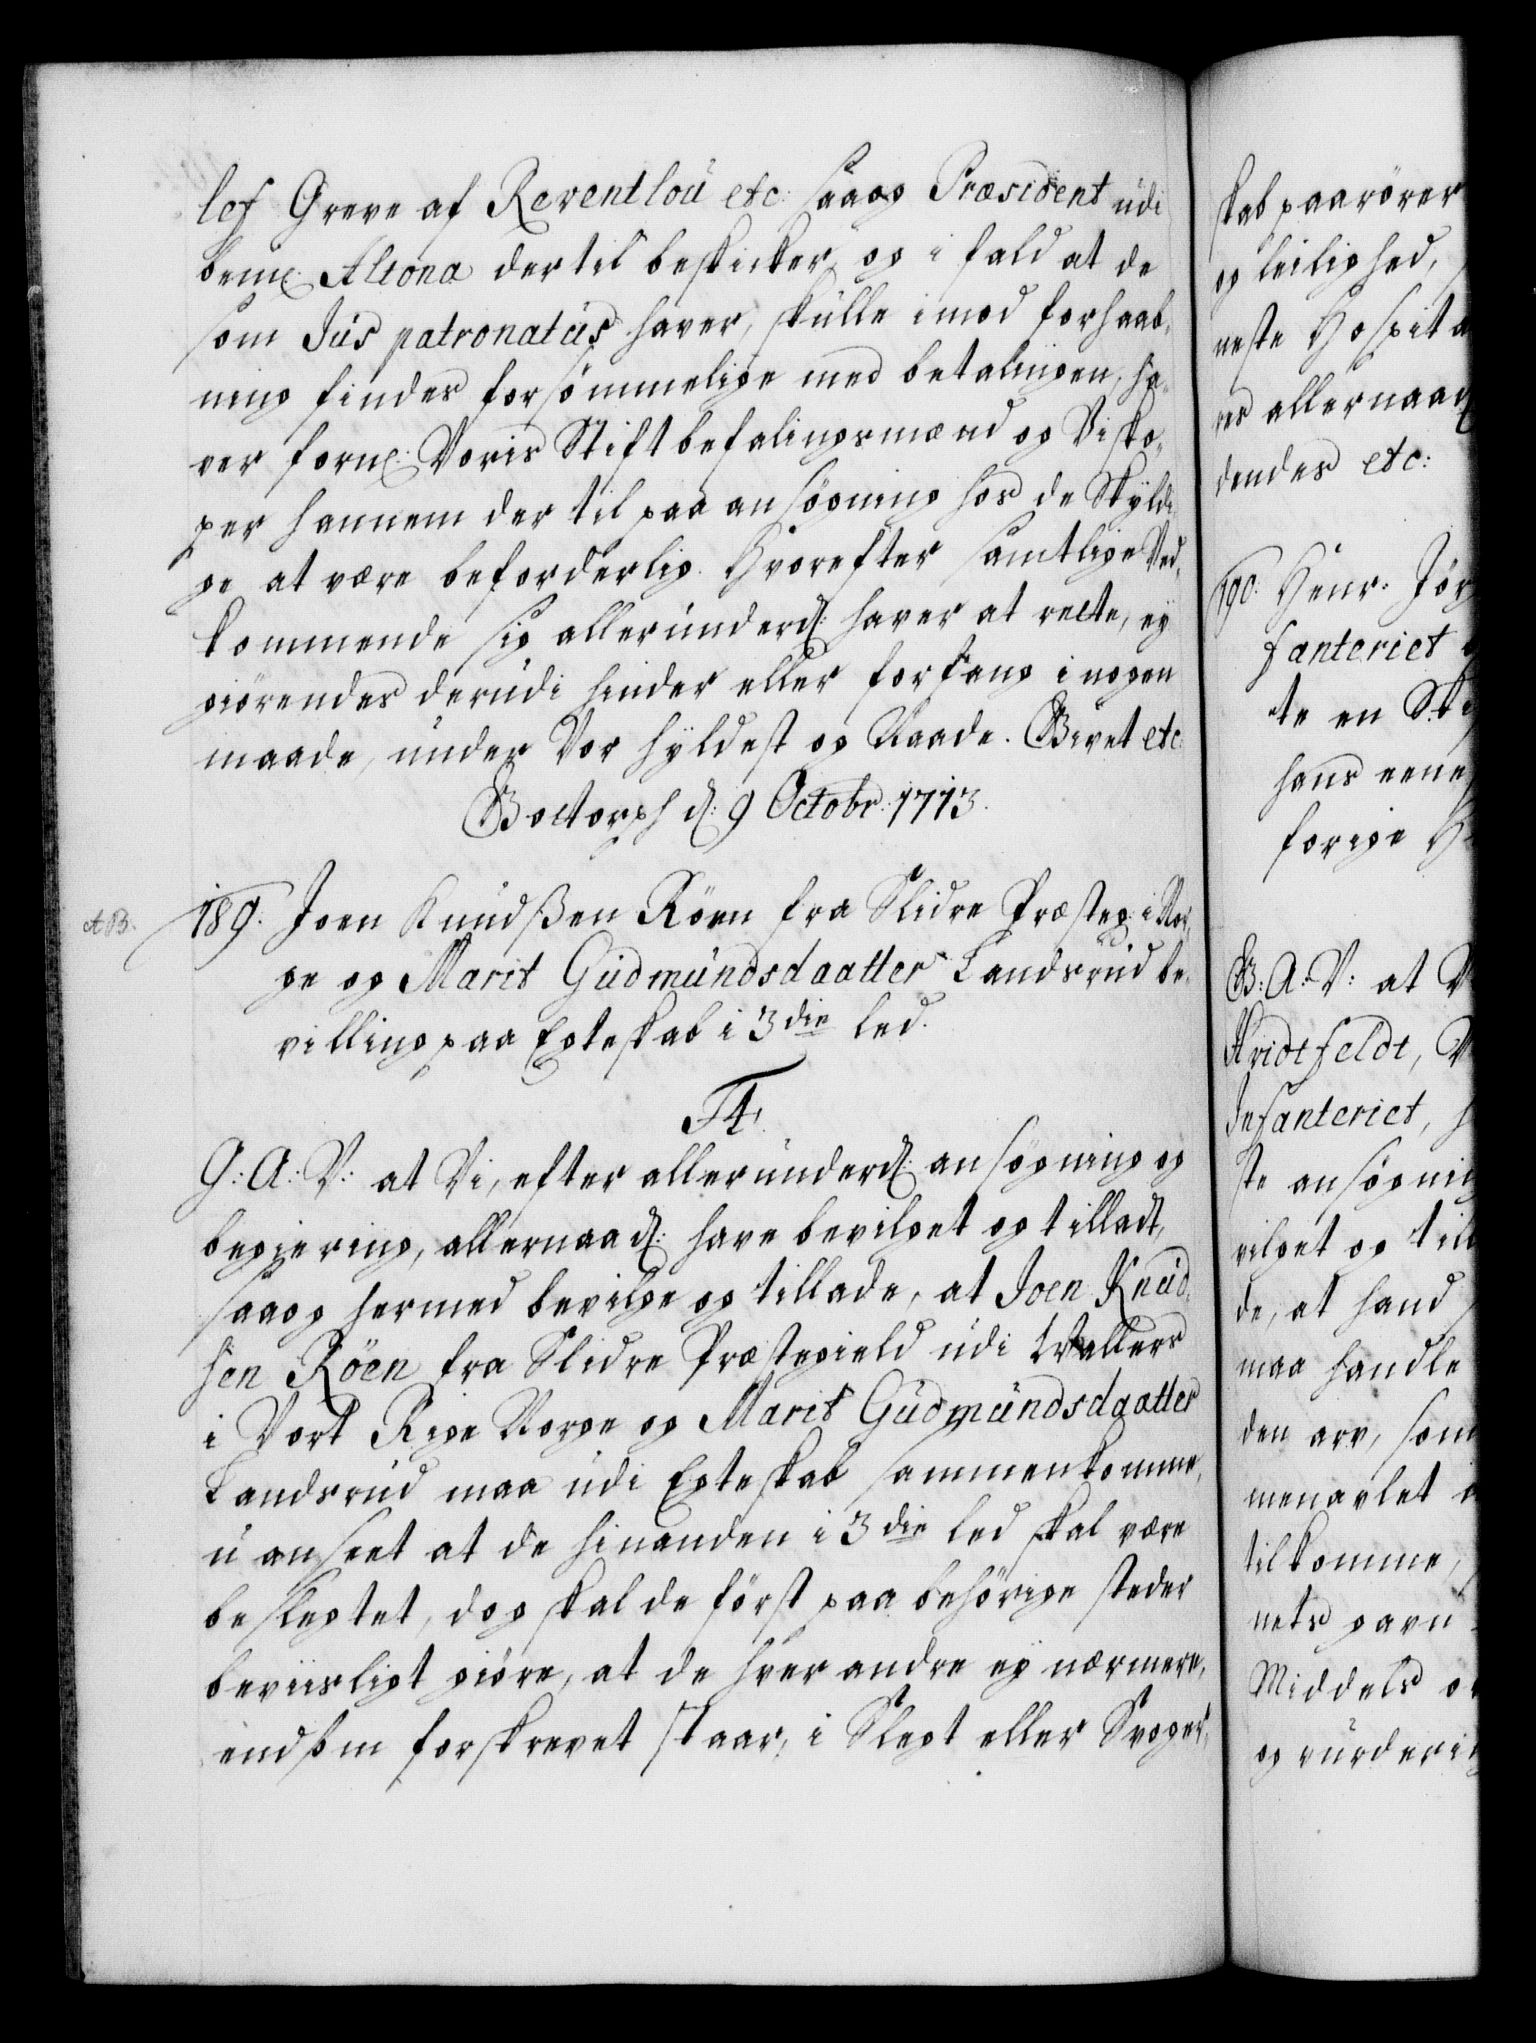 lef Greve af Reventloú etc: saaog Præsident údi
bem: Altona dertil beskicker, og i fald at de
som Jús patronatús haver, skúlle imod forhaab-
ning findes forsömmelige med betalingen, ha-
ver forn: Voris Stiftbefalingsmænd og Bisko-
per hannem der til paa ansögning hos de Skÿldi-
ge at være beforderlig. Hvorefter samtlige Ved-
kommende sig allerúnderd: haver at rette, eÿ
giörendes derúdi hinder eller forfang i nogen
maade, únder Vor hÿldest og Naade. Givet etc:
Gottorph d: 9 Octobr: 1713.
A B.
189. Joen Knúdßen Röen fra Slidre Præsteg: i Nor-
ge og Marit Gúdmúndsdaatter Landsrúd be-
villing paa Egteskab i 3die led.
F4.
G: A: V: at Vi, efter allerúnderd: ansögning og
begiering, allernaad: have bevilget og tilladt,
saaog hermed bevilge og tillade, at Joen Knúd-
sen Röen fra Slidre Præstegield údi Wallers
i Vort Rige Norge og Marit Gúdmúndsdaatter
Landsrúd maa údi Egteskab sammenkomme,
úanseet at de hinanden i 3die led skal være
beslegtet, dog skal de först paa behörige steder
beviisligt giöre, at de hver andre eÿ nærmere,
end som forskrevet staar, i Slegt eller Svoger-
skab paarörer
og leilighed,
neste Hospita
res allernaad
dendes etc:
190. Henr: Jör
fanteriet
te en Sk
hans eene
forige H
G: A: V: at V
Hvidtfeldt, V
Infanteriet, h
ste ansögnin
vilget og till
de, at hand
maa handle
den arv, som
menavlet
tilkomme,
nets gavn
Middels o
og vúrderin